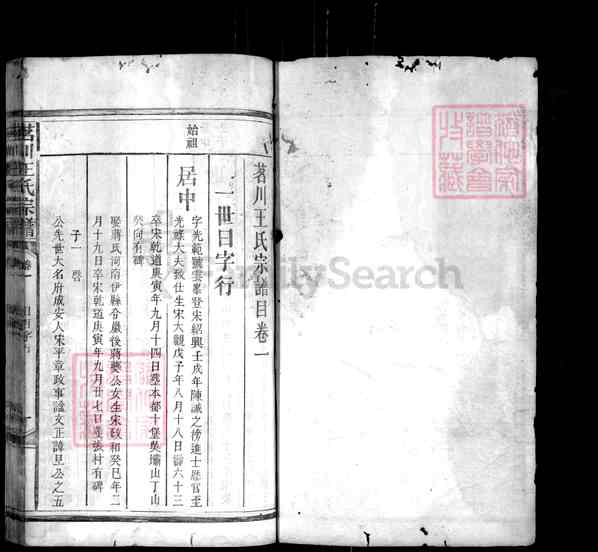 茗川王氏宗譜目卷一
一世日字行
始祖
居中
字光範號雲峯登宋紹興壬戌年陳誠之榜進士歷官至
光祿大夫致仕生宋大觀戊子年八月十八日壽六十三
卒宋乾道庚寅年九月十四日塟本都十堡吳壩山丁山
癸向有碑
娶蔣氏河南伊縣令嚴後蔣夔公女生宋政和癸巳年二
月十九日卒宋乾道庚寅年九月廿七日塟張村有碑
子一
公先世大名府成安人宋平章政事諡文正諱旦公之五
茗川王氏宗譜
卷一
FamilySearch